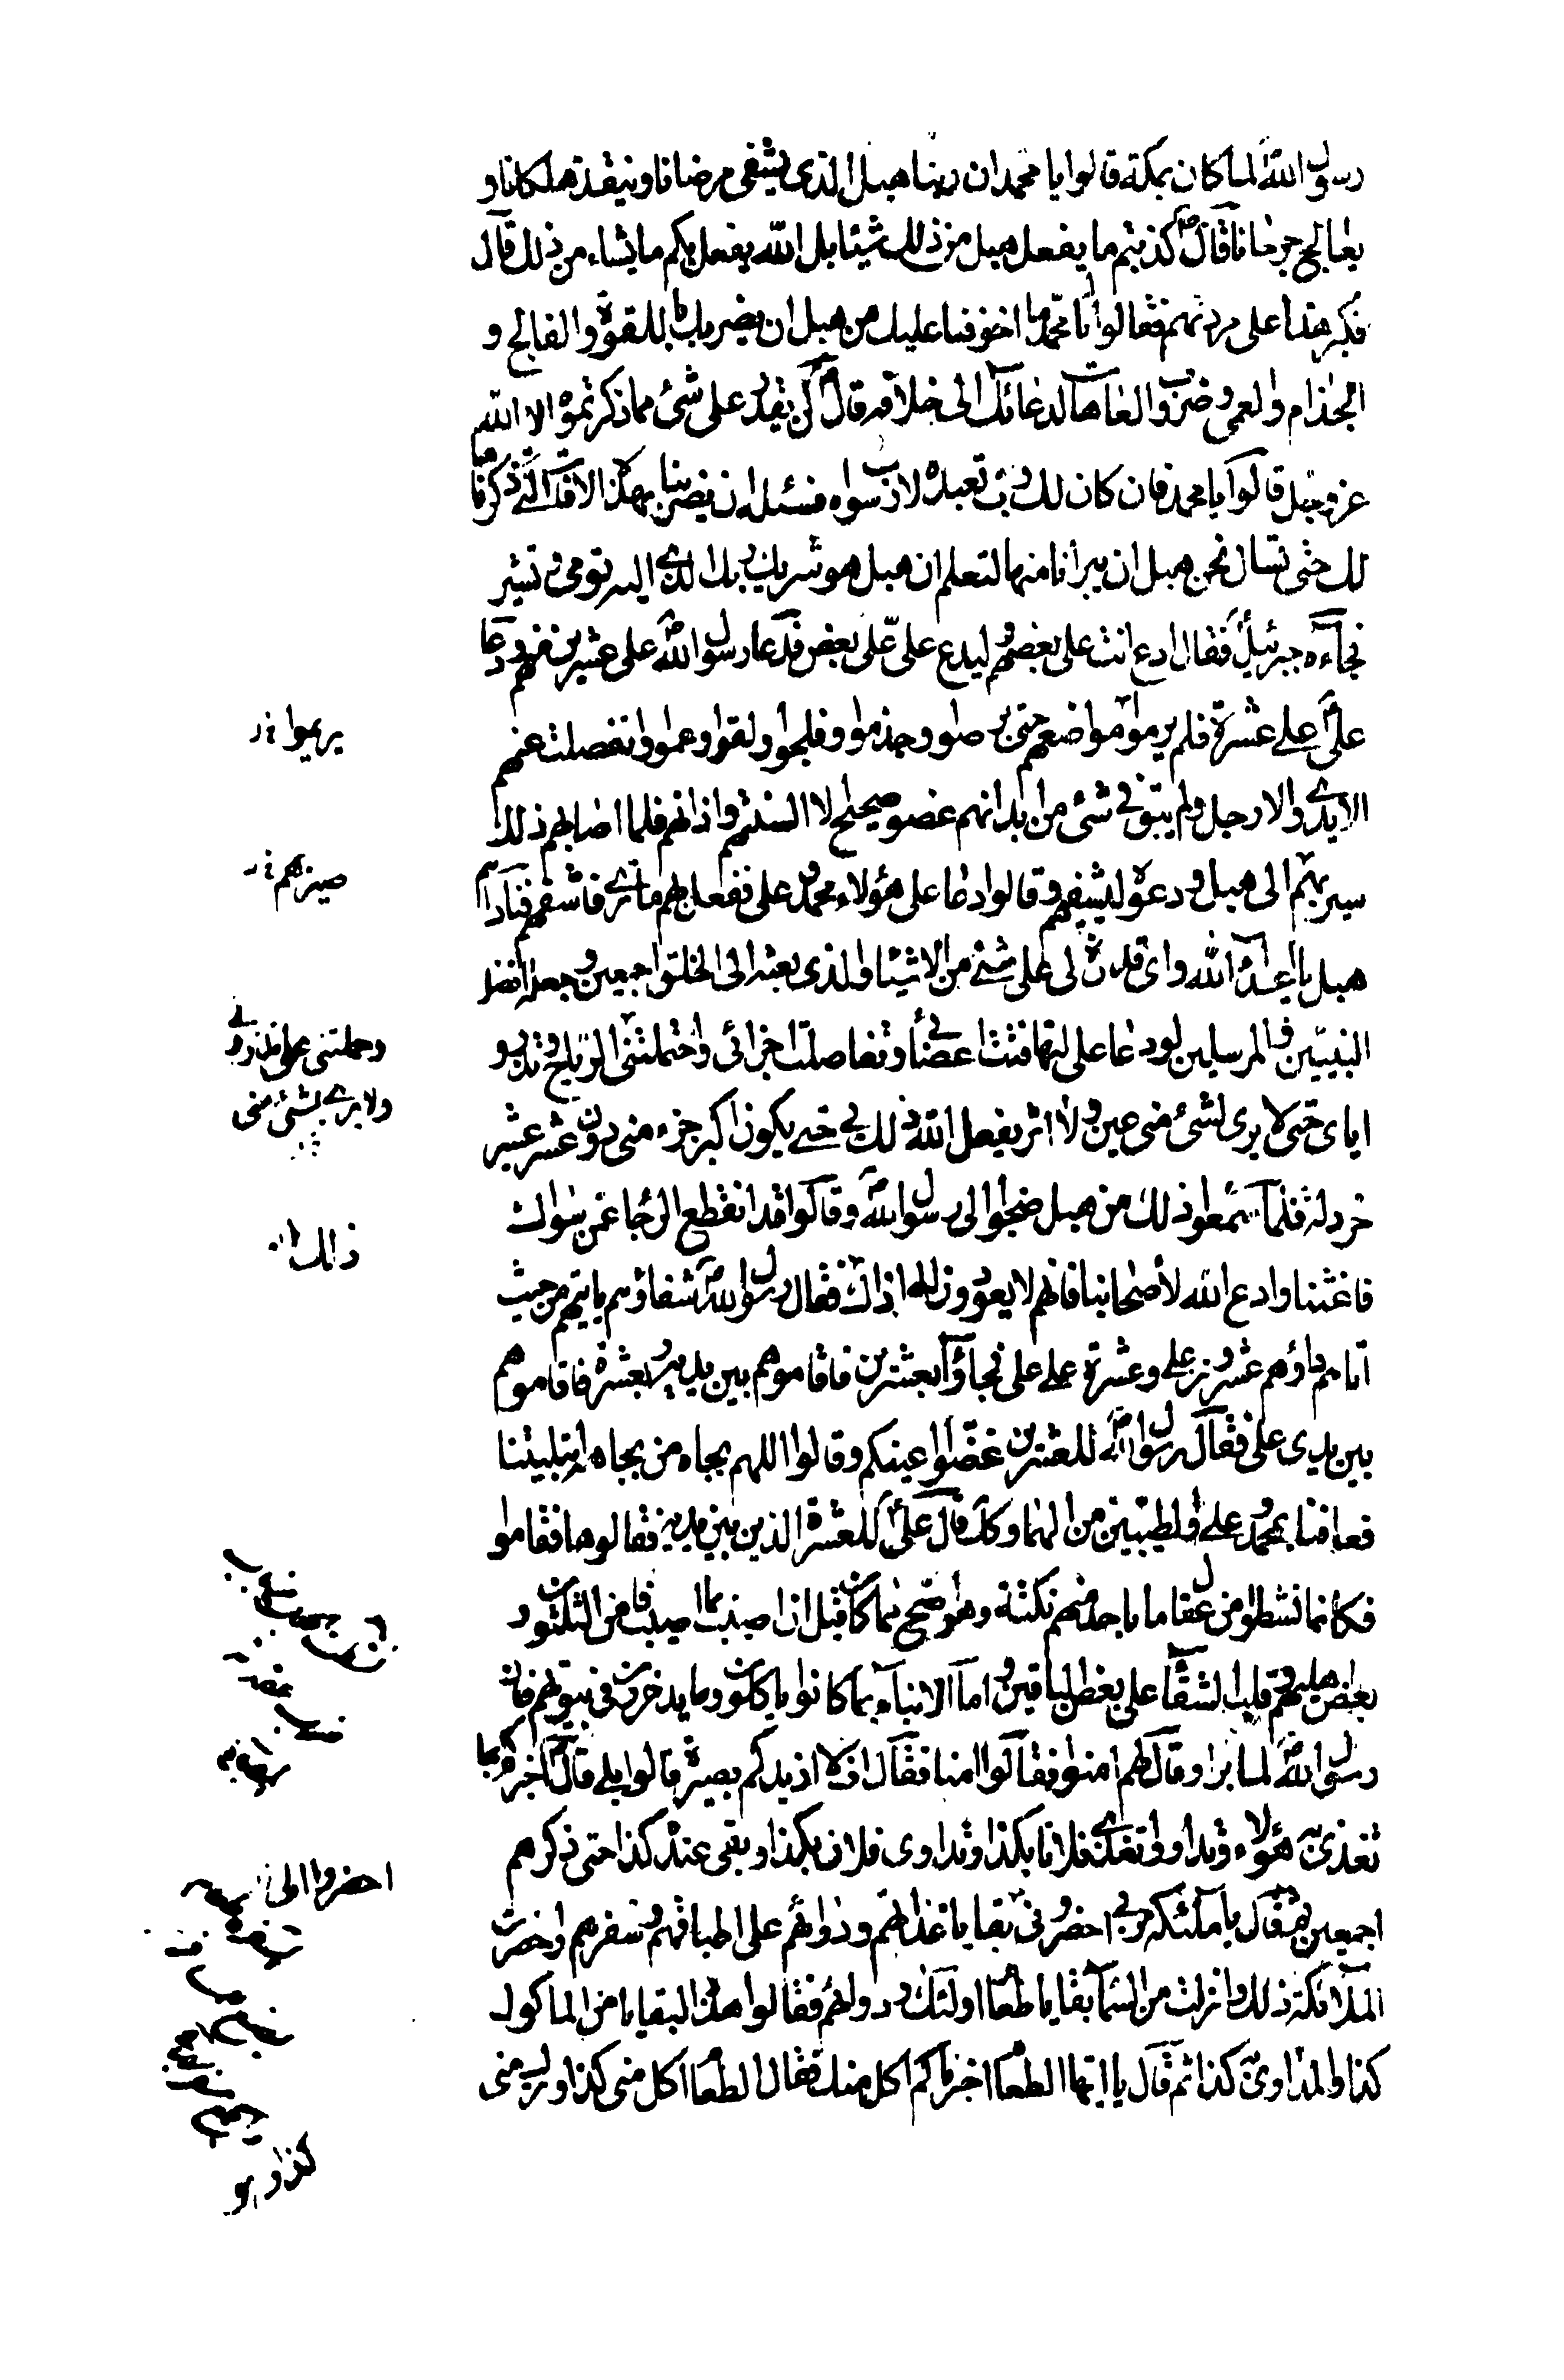 رسول الله لما كان بمكة قالوا يا محمد ان ربنا هبل الذى يشفى مرضانا وينقذ هلكانا و
يعالج جرحانا قال كذبتم ما يفعل هبل من ذلك شيئا بل الله يفعل بكم ما يشاء من ذلك قال
فكبر هذا على مردتهم فقالوا يا محمد ما اخوفنا عليك من هبل ان يضربك باللقوة والفالج و
الجذام والعمى وضروب العاهات لدعائك الى خلافه قال لن يقدر على شئ مما ذكرتموه الا الله
عز وجل قالوا يا محمد فان كان لك رب تعبده لا رب سواه فسئله ان يضربنا بهذه الافات التى ذكرناها
لك حتى نسال نحن هبل ان يبرانا منها لتعلم ان هبل هو شريك ربك الذى اليه تومى وتشير
فجاءه جبرئيل فقال ادع انت على بعضهم وليدع على على بعض فدعا رسول الله على عشرين نفر منهم ودعا
على على عشرة فلم يريموا مواضعهم حتى برصوا وجذموا وفلجوا ولقوا وعموا وانفصلت عنهم
يريموا
الايدى والارجل ولم يبق فى شئ من ابدانهم عضو صحيح الا السنتهم واذانهم فلما اصابهم ذلك
سير بهم الى هبل ودعوه ليشفيهم وقالوا دعا على هؤلاء محمد وعلى ففعل بهم ما ترى فاشفهم فناداهم
هبل يا اعداء الله واى قدرة لى على شئ من الاشياء والذى بعثه الى الخلق اجمعين وجعله افضل
النبيين والمرسلين لو دعا على لتهافتت اعضائى وتفاصلت اجزائى واحتملتنى الرياح وتذرو
اياى حتى لا يرى لشئ منى عين ولا اثر يفعل الله ذلك بى حتى يكون اكبر جزء منى دون عشر عشير
ولا يرى لشئ منى
خردلة فلما سمعوا ذلك من هبل ضجوا الى رسول الله وقالوا قد انقطع الرجا عمن سواك
فاغثنا وادع الله لاصحابنا فانهم لا يعودون الى اذاك فقال رسول الله شفاؤهم ياتيهم من حيث
اتاهم داؤهم عشرون على وعشرة على على فجاؤا بعشرين فاقاموهم بين يديه وبعشرة فاقاموهم
بين يدى على فقال رسول الله للعشرين غضوا اعينكم وقالوا اللهم بجاه من بجاهه ابتليتنا
فعافنا بمحمد وعلى والطيبين من الهما وكذلك قال على للعشرة الذين بين يديه فقالوها فقاموا
فكانما نشطوا من عقال ما باحد منهم نكتة وهو اصح مما كان قبل ان اصيب بما اصيب فامن الثلثون و
بعض اهليهم وغلب الشقاء على بعض الباقين واما الانباء بما كانوا ياكلون وما يدخرون فى بيوتهم فان
رسول الله لما برؤا وقال لهم امنوا فقالوا امنا فقال افلا ازيدكم بصيرة قالوا بلى قال اخبركم بما
تغذى به هؤلاء وتداووا تغدى فلان بكذا وتداوى فلان بكذا وبقى عنده كذا حتى ذكرهم
احضروا الى
اجمعين ثم قال يا ملئكة ربى احضرونى بقايا غذائهم ودوائهم على اطباقهم وسفرهم واحضرت
الملائكة ذلك وانزلت من السماء بقايا طعام اولئك ودوائهم فقالوا هذه البقايا من الماكول
كذا والمداوى به كذا ثم قال يا ايها الطعام اخبرنا كم اكل منك فقال الطعام اكل منى كذا وترك منى